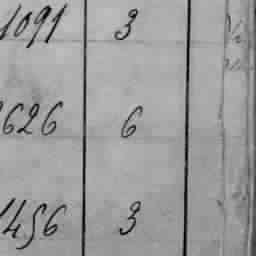 1091 3
2626 6
1456 3